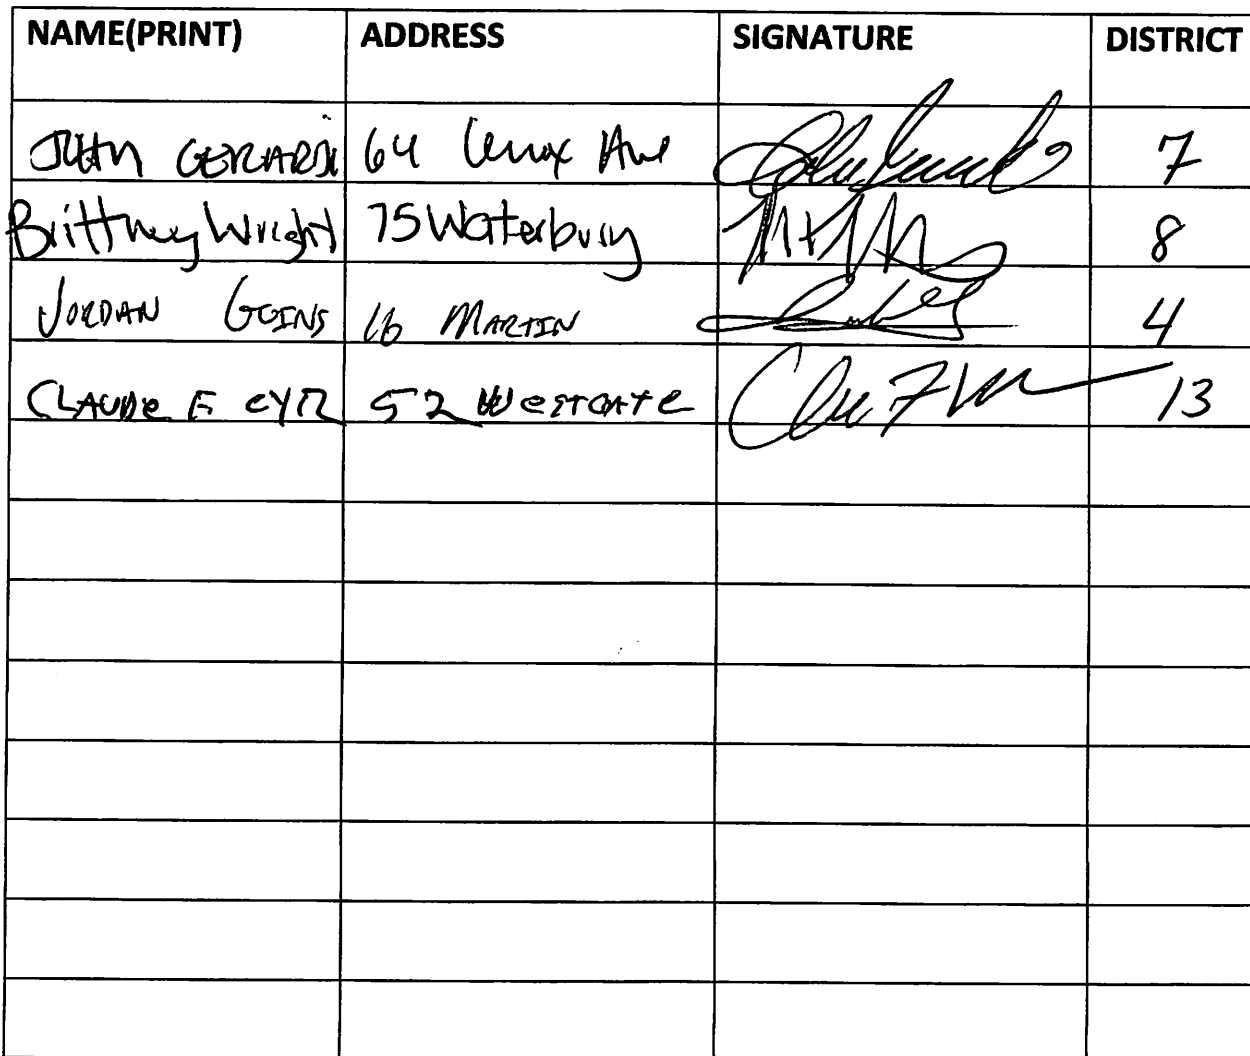 NAME(PRINT) ADDRESS SIGNATURE DISTRICT
JOHN GERARDI 64 Lenox Ave 7
Brittney Wright 75 Waterbury 8
JORDAN GOINS 16 MARTIN 4
CLAUDE E CYR 52 WESTGATE 13